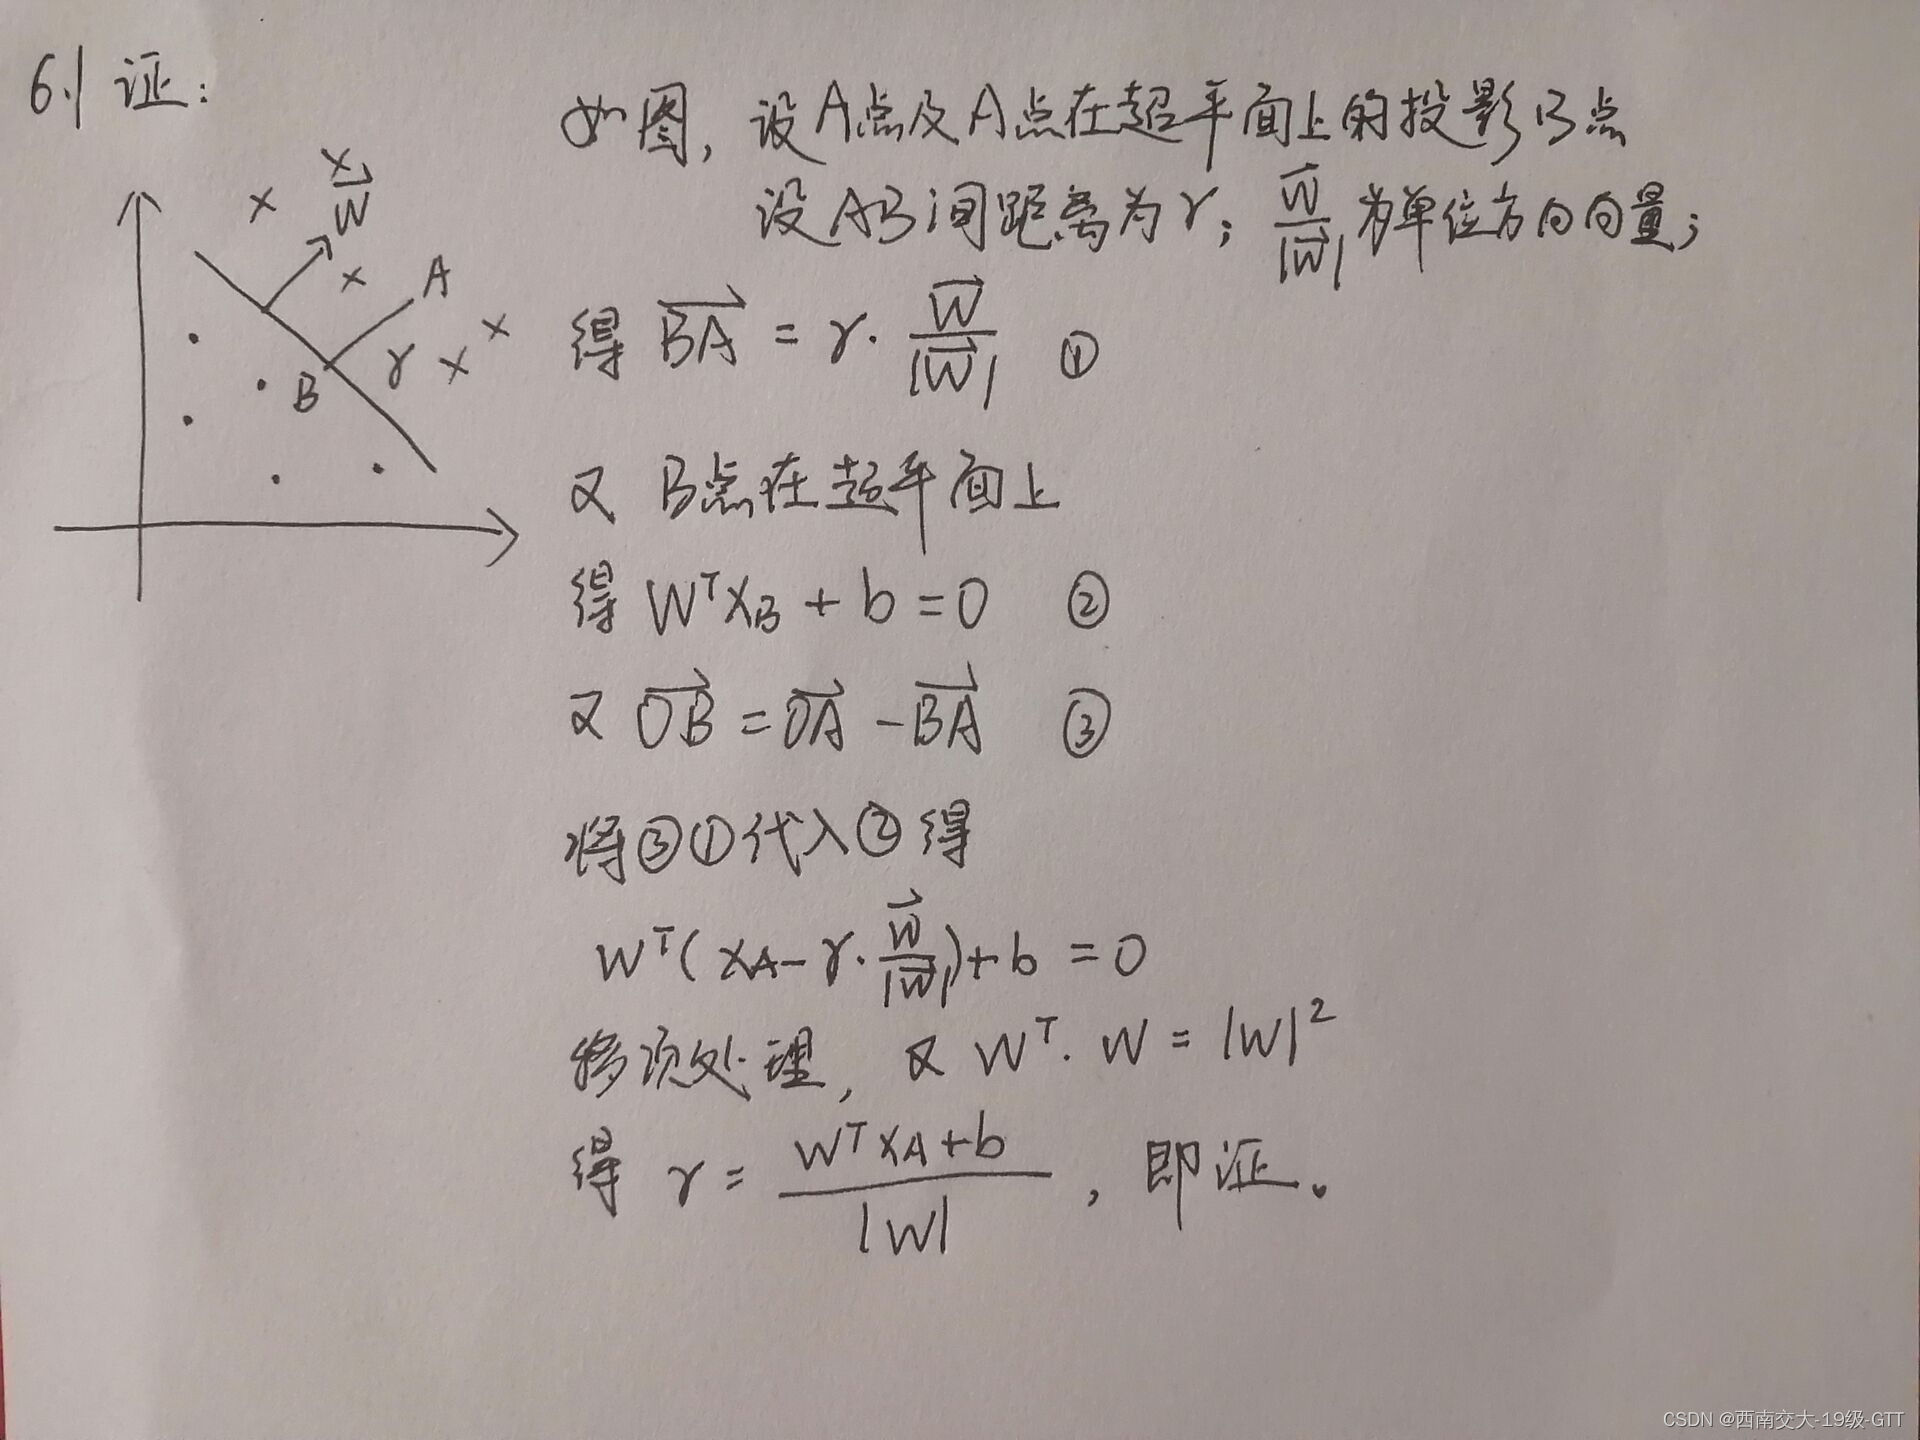 6.1 证:
如图, 设A点及A点在超平面上的投影B点
设AB间距离为γ; \frac{\vec{W}}{|\vec{W}|} 为单位方向向量;
x
x
\vec{W}
x
A
x
γ
x
B
得 \vec{BA} = γ· \frac{\vec{W}}{|\vec{W}|} ①
又 B点在超平面上
得 W^T x_B + b = 0 ②
又 \vec{OB} = \vec{OA} - \vec{BA} ③
将③①代入②得
W^T( x_A - γ· \frac{\vec{W}}{|\vec{W}|})+b = 0
移项处理, 又 W^T· W = |W|^2
得 γ = \frac{W^T x_A + b}{|W|}, 即证。
CSDN @西南交大-19级-GTT